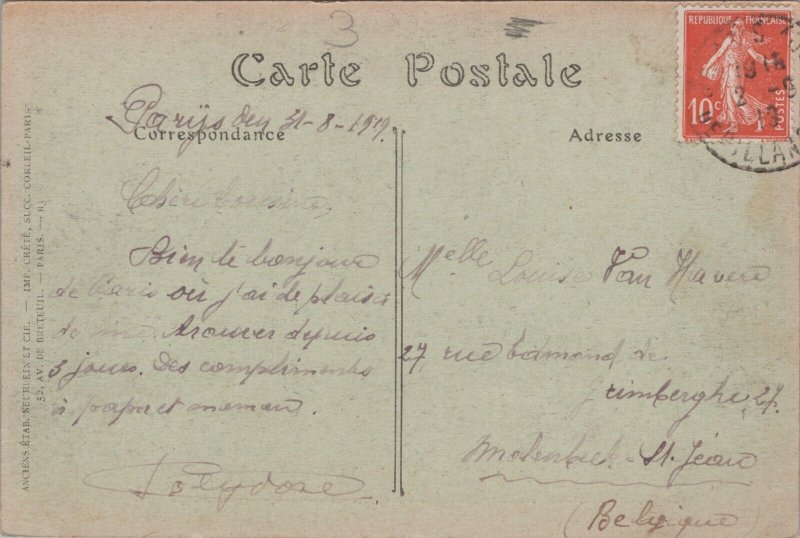 3
Carte Postale
Correspondance
Adresse
Parijs den 31-8-1919.
Chère Cousine,
Bien le bonjour
de Paris où j'ai le plaisir
de me trouver depuis
3 jours. Des compliments
à papa et maman.
Polydore
Melle Louise Van Havere
27, rue Edmond de
Grimberghe 27.
Molenbeek-St. Jean
(Belgique)
REPUBLIQUE FRANÇAISE
10c
POSTES
ANCIENS ÉTAB. NEURDEIN ET CIE. — IMP. CRÉTÉ, SUCC. CORBEIL-PARIS
52, AV. DE BRETEUIL. — PARIS. —